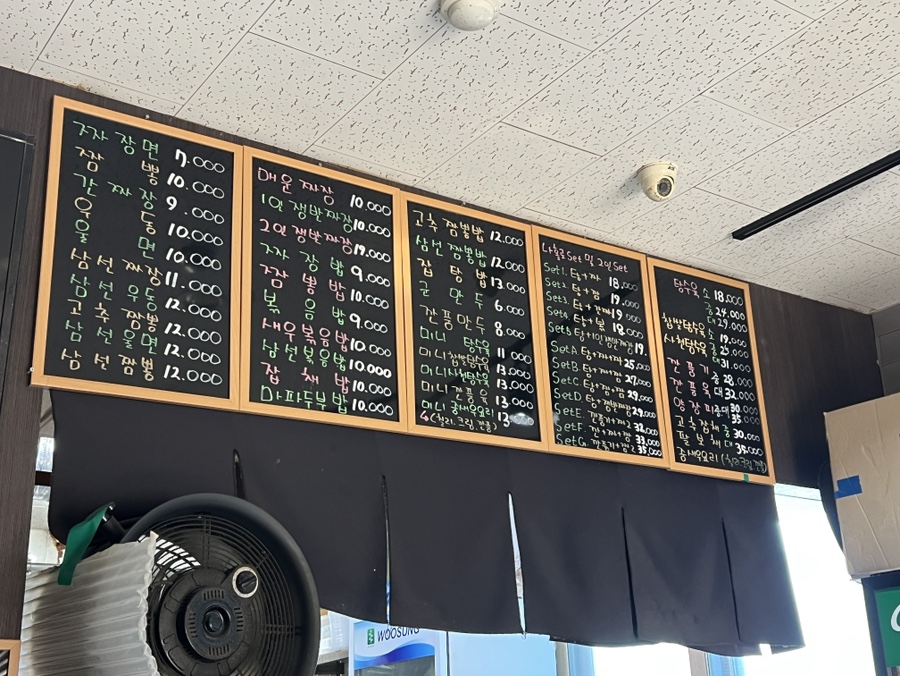 짜장면 7.000
짬뽕 10.000
간짜장 9.000
우동 10.000
울면 10.000
삼선짜장 11.000
삼선우동 12.000
고추짬뽕 12.000
삼선울면 12.000
삼선짬뽕 12.000
매운짜장 10.000
1인쟁반짜장 10.000
2인쟁반짜장 19.000
짜장밥 9.000
짬뽕밥 10.000
볶음밥 9.000
새우볶음밥 10.000
삼선볶음밥 10.000
잡채밥 10.000
마파두부밥 10.000
고추짬뽕밥 12.000
삼선짬뽕밥 12.000
잡탕밥 13.000
군만두 6.000
깐풍만두 8.000
미니탕수육 11.000
미니찹쌀탕수육 13.000
미니사천탕수육 13.000
미니깐풍육 13.000
미니중새우요리 13.000
4(칠리, 크림, 깐풍)
나홀로Set 및 2인Set
Set1. 탕+짜 18.000
Set2. 탕+짬 19.000
Set3. 탕+간짜 19.000
Set4. 탕+볶 18.000
Set5. 탕+1인쟁반짜장 19.
SetA. 탕+짜+짜 25.000
SetB. 탕+짜+짬 27.000
SetC. 탕+짬+짬 29.000
SetD. 탕+쟁반짜장 29.000
SetE. 깐풍기+짜2 32.000
SetF. 깐+짜+짬 33.000
SetG. 깐풍기+짬2 35.000
탕수육 소 18.000
중 24.000
대 29.000
찹쌀탕수육 소 19.000
사천탕수육 중 25.000
대 31.000
깐풍기 중 28.000
깐풍육 대 32.000
양장피 중 30.000
대 35.000
고추잡채 중 30.000
팔보채 대 35.000
중새우요리 (칠리,크림,깐풍)
WOOSUNG